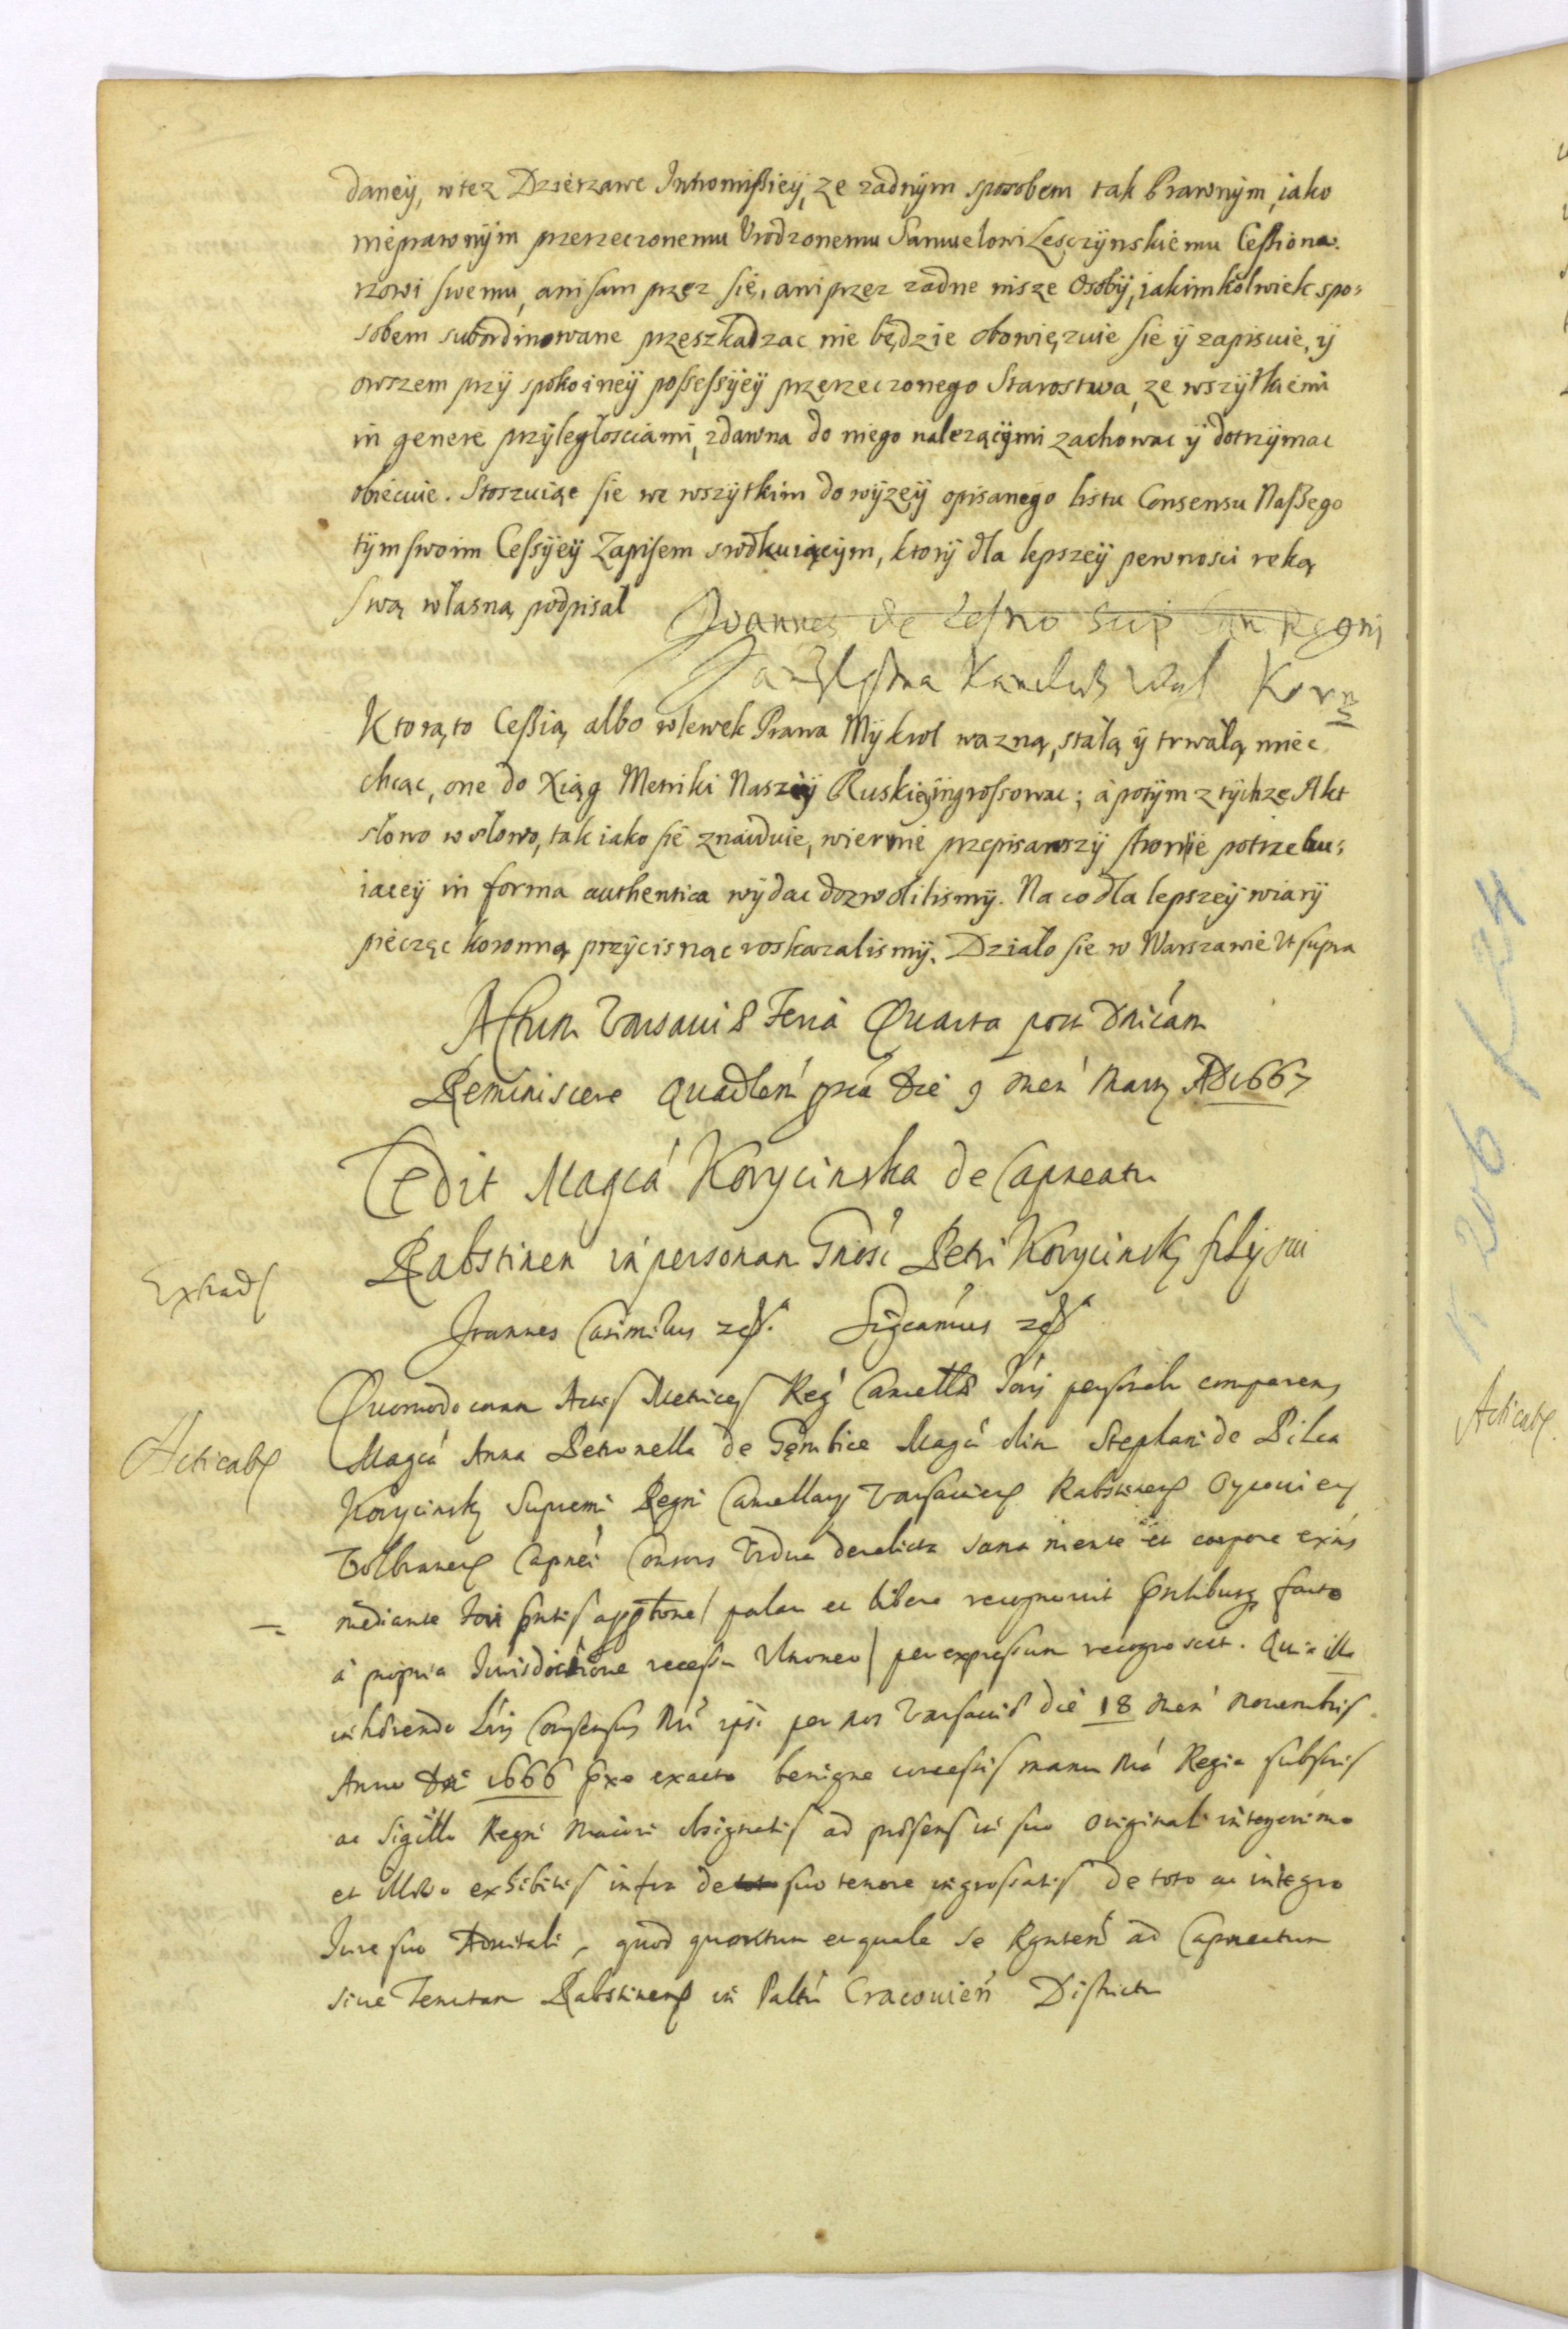 daneÿ, wtez Dzierzawe Intromißieÿ, ze zadnÿm sposobem tak Prawnÿm, iako
nieprawnÿm przerzeczonemu Vrodzonemu Samuelowi Lesczÿnskiemu Ceßiona-
rzowi swemu, ani sam przez się, ani przez zadne insze Osobÿ, iakimkolwiek spo-
sobem subordinowane przeszkadzac nie będzie obowięzuie sie ÿ zapisuie, ÿ
owszem przÿ spokoineÿ poßeßÿeÿ przerzeczonego Starostwa, ze wszÿtkiemi
in genere przÿległosciami, zdawna do niego nalezącÿmi zachowac ÿ dotrzÿmac
obiecuie. Stoszuiąc sie we wszÿtkim do wÿzeÿ opisanego listu Consensu Naßego
tÿm swoim Ceßÿeÿ Zapisem srodkuiącÿm, ktorÿ dla lepszeÿ pewnosci reką
swą własną podpisał Joannes de Lesno Sup Can Regni
Jan z Leszna Kanclerz Wiel Korn
Ktorąto Ceßią albo wlewek Prawa Mÿ krol wazną, stałą ÿ trwałą miec
chcąc, one do Xiąg Metriki Naszeÿ Ruskieÿ ingrossowac; á potÿm z tÿchze Akt
słowo wsłowo, tak iako sie znaiduie, wiernie przepisawszÿ stronie potrzebu-
iaceÿ in forma authentica wÿdac dozwolilismÿ. Na co dla lepszeÿ wiarÿ
pieczęc koronną przÿcisnąc roskazalismÿ. Działo sie w Warszawie Vt supra
Actum Varsaviæ Feria Quarta post Dnicam
Reminiscere Quadlen pxa Die 9 Men Marty AD 1667
Cedit Magca Korycinska de Capneatu
Rabstinen in personam Gnosi Petri Korycinsky fily sui
Extrad
Joannes Casimirus
Acticat
Quomodo coram Actis Metrices Reg Cancellæ personalr comparens
Magca Anna Petronella de Gembice Magci olim Stephani de Pilca
Korycinsky Supremi Regni Cancellary Varsavien Rabstinen Oycovien
Volbramen Capnei Consors Vidua derelicta sana mente et corpore exns
mediante palam et libere recognovit facto
à propria Jurisdictione recessu Vnoneo per expressum recognoscit. Quia illa
inhærendo Consensus Nri ipsi per nos Varsaviæ die 18 Men Novembris
Anno Dni 1666 exacto benigne concessis manu Nra Regia subscris
ac Sigillo Regni Maiori obsignatis ad præsens in suo originali integerrimo
et illæso exhibitis infra de suo tenore ingrossatis de toto ac integro
Jure suo Advitali, quod quantum et quale se ad Capneatum
sive Tenutam Rabstinen in Paltu Cracovien Districtu
Acticat